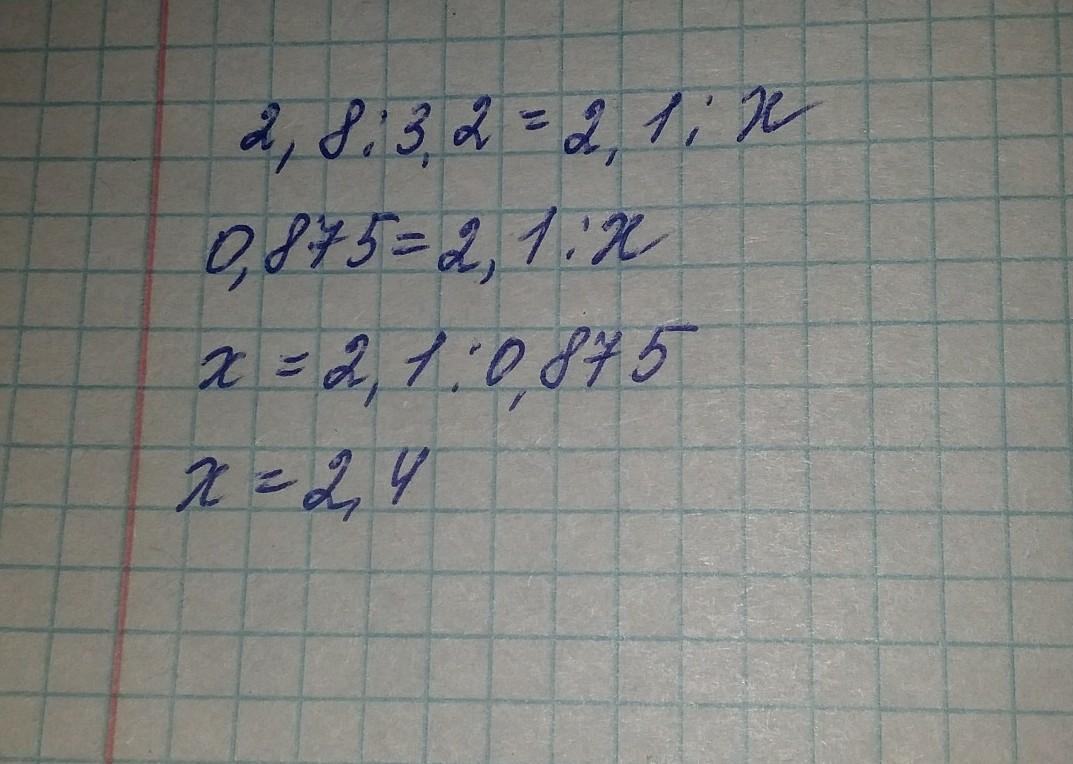 2,8:3,2=2,1:x
0,875=2,1:x
x=2,1:0,875
x=2,4